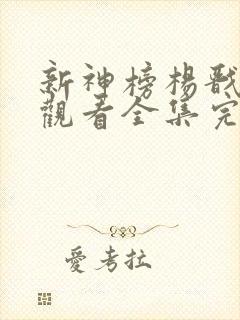 新神榜楊戩
觀看全集完
愛考拉